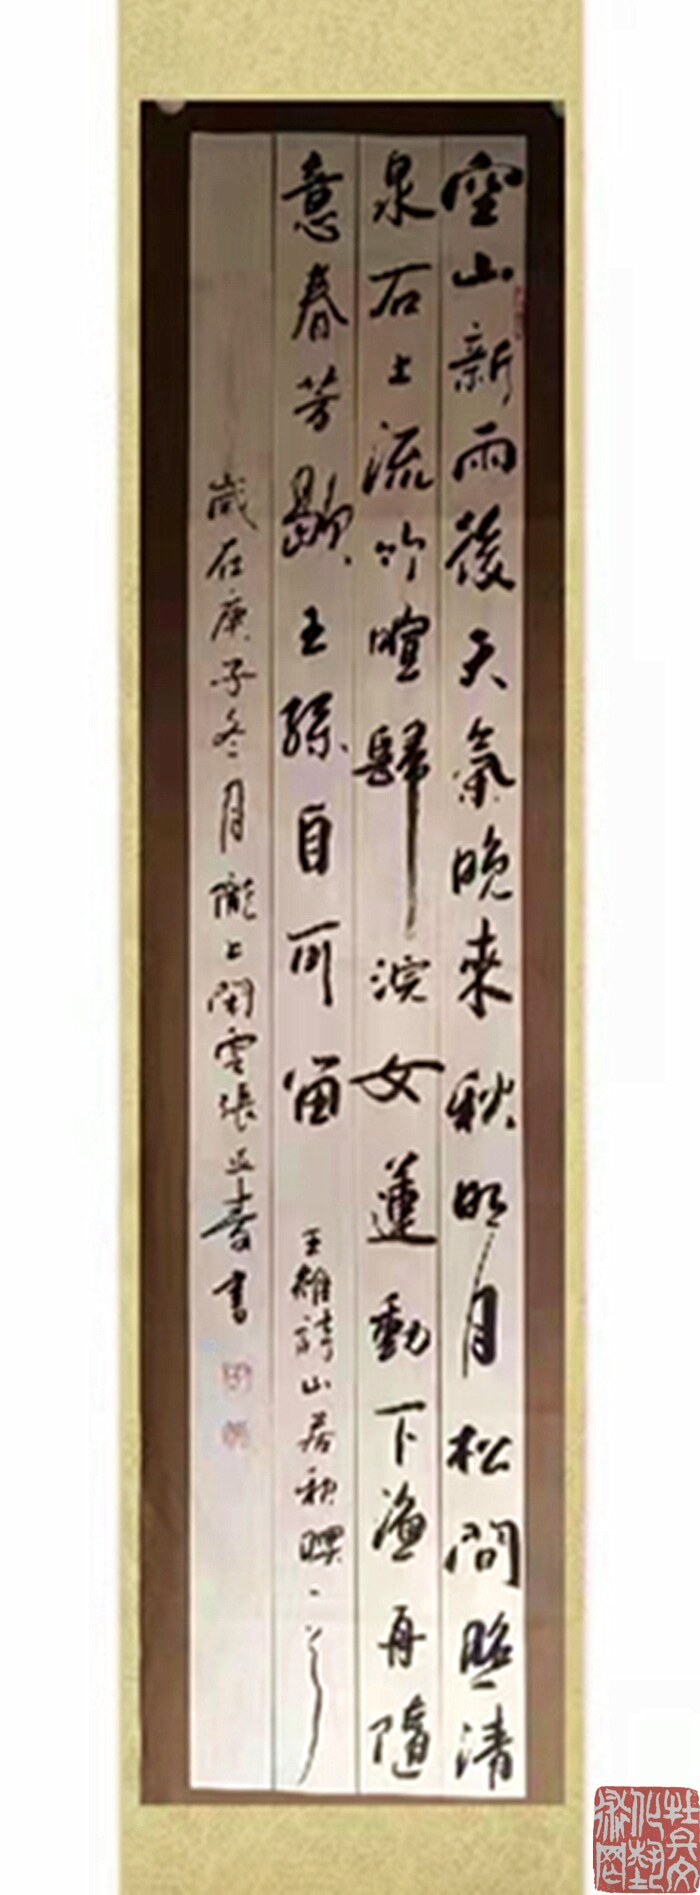 空山新雨後天氣晚來秋明月松間照清
泉石上流竹喧歸浣女蓮動下漁舟隨
意春芳歇王孫自可留
王維詩山居秋暝一首
歲在庚子冬月隴上閑雲張
書